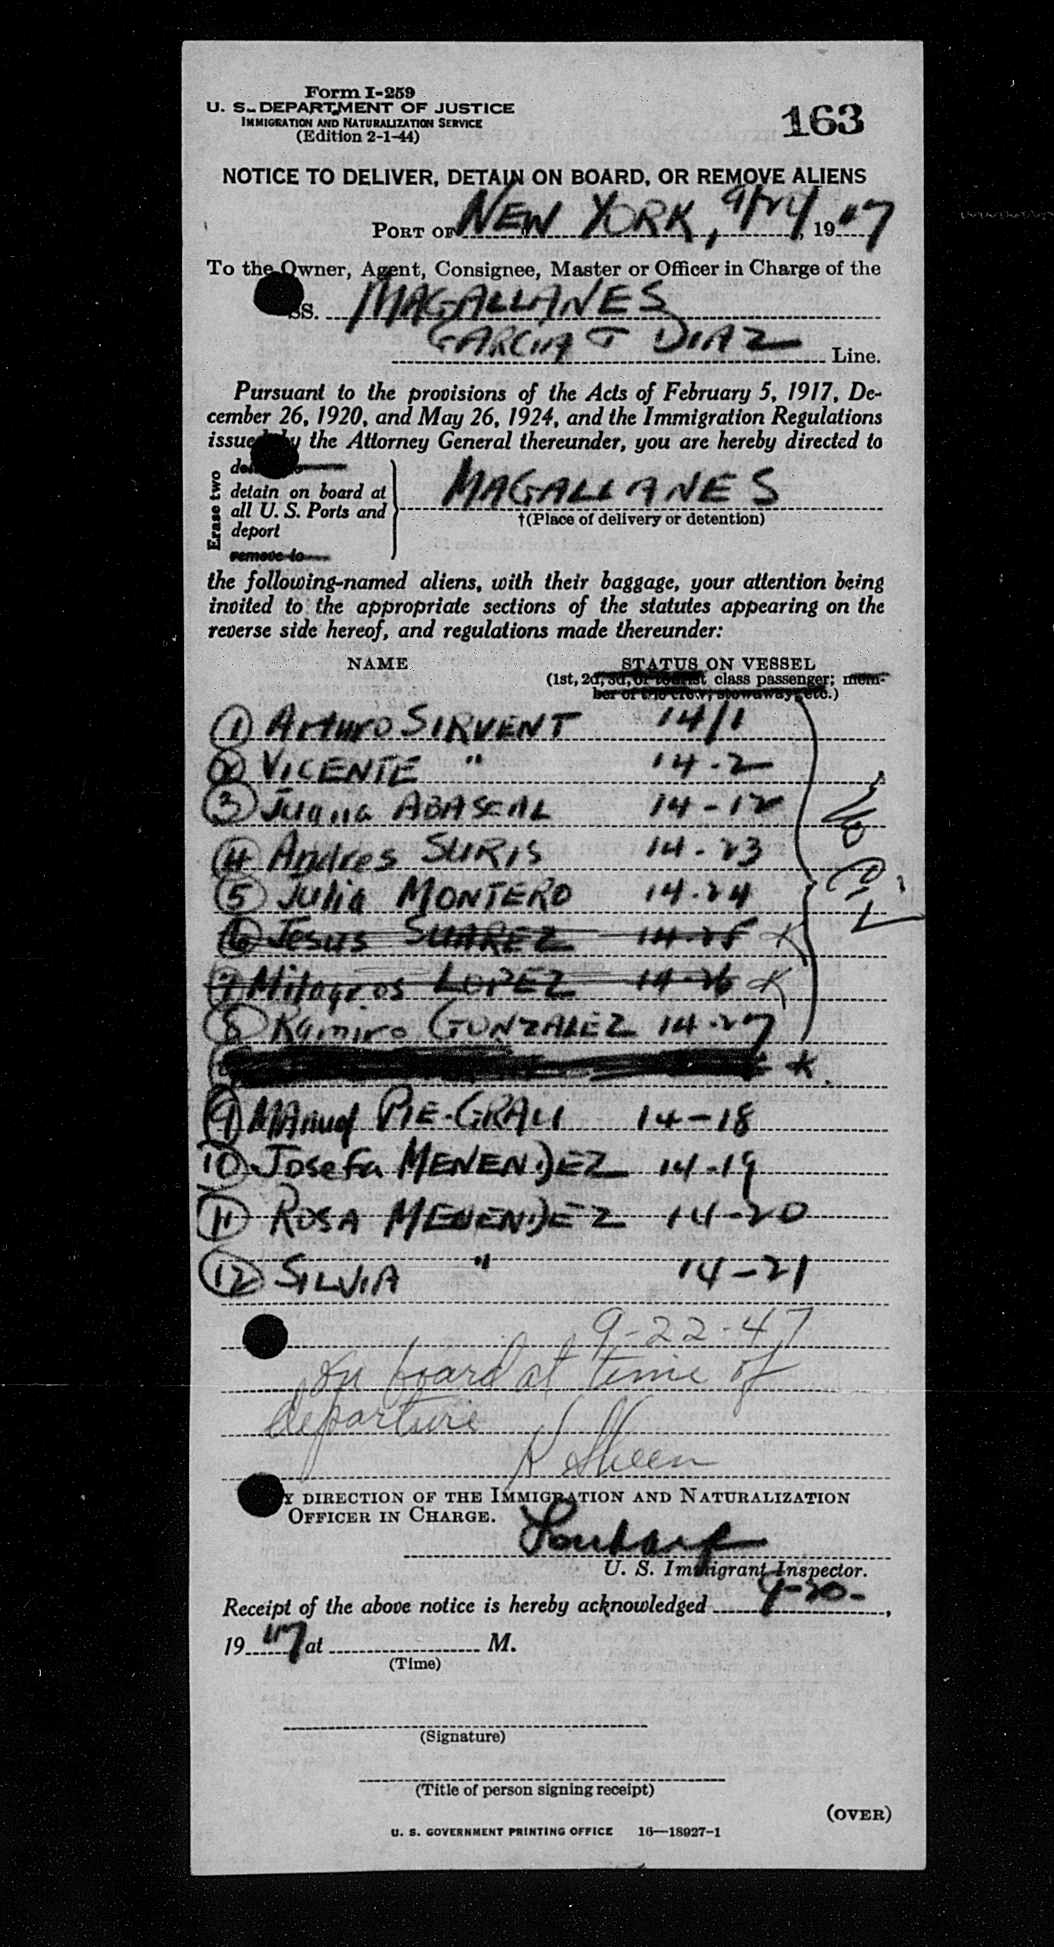 Form I-259
U. S. DEPARTMENT OF JUSTICE
IMMIGRATION AND NATURALIZATION SERVICE
(Edition 2-1-44)
163
NOTICE TO DELIVER, DETAIN ON BOARD, OR REMOVE ALIENS
PORT OF NEW YORK, 1947
To the Owner, Agent, Consignee, Master or Officer in Charge of the
SS. MAGALLANES
GARCIA & DIAZ Line.
Pursuant to the provisions of the Acts of February 5, 1917, De-
cember 26, 1920, and May 26, 1924, and the Immigration Regulations
issued by the Attorney General thereunder, you are hereby directed to
Erase two
detain on board at
all U. S. Ports and
deport
remove to
MAGALLANES
†(Place of delivery or detention)
the following-named aliens, with their baggage, your attention being
invited to the appropriate sections of the statutes appearing on the
reverse side hereof, and regulations made thereunder:
NAME STATUS ON VESSEL
(1st, 2d, 3d, or tourist class passenger; mem-
ber of the crew; stowaway; etc.)
1 Arturo SIRVENT 14/1
2 VICENTE " 14-2
3 Juana ABASCAL 14-12
4 Andres SURIS 14-23
5 Julia MONTERO 14-24
6 Jesus SUAREZ 14-25 X
7 Milagros LOPEZ 14-26 X
8 Ramiro GONZALEZ 14-27
9 Manuel PIE-GRAU 14-18
10 Josefa MENENDEZ 14-19
11 ROSA MENENDEZ 14-20
12 SILVIA " 14-21
9-22-47
On board at time of
departure
K Sheen
BY DIRECTION OF THE IMMIGRATION AND NATURALIZATION
OFFICER IN CHARGE.
U. S. Immigrant Inspector.
Receipt of the above notice is hereby acknowledged 9-20-,
1947 at M.
(Time)
(Signature)
(Title of person signing receipt)
(OVER)
U. S. GOVERNMENT PRINTING OFFICE 16—18927-1